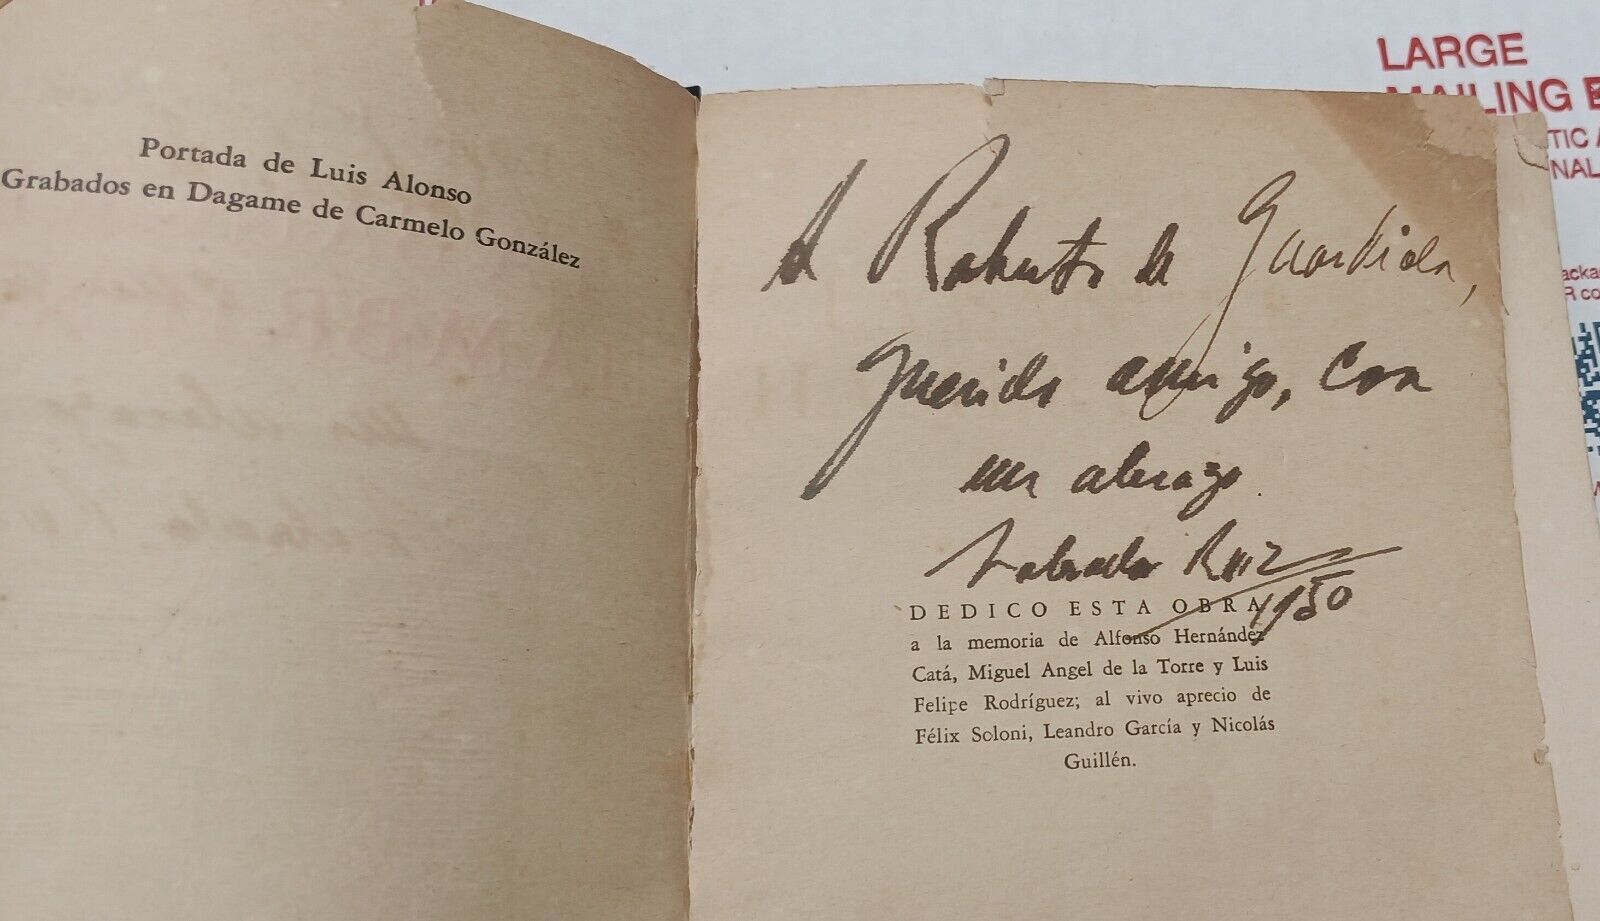 Portada de Luis Alonso
Grabados en Dagame de Carmelo González
A Roberto de Guardiola,
querido amigo, con
un abrazo.
Labrador Ruiz
1950
DEDICO ESTA OBRA
a la memoria de Alfonso Hernández
Catá, Miguel Angel de la Torre y Luis
Felipe Rodríguez; al vivo aprecio de
Félix Soloni, Leandro García y Nicolás
Guillén.
LARGE
MAILING